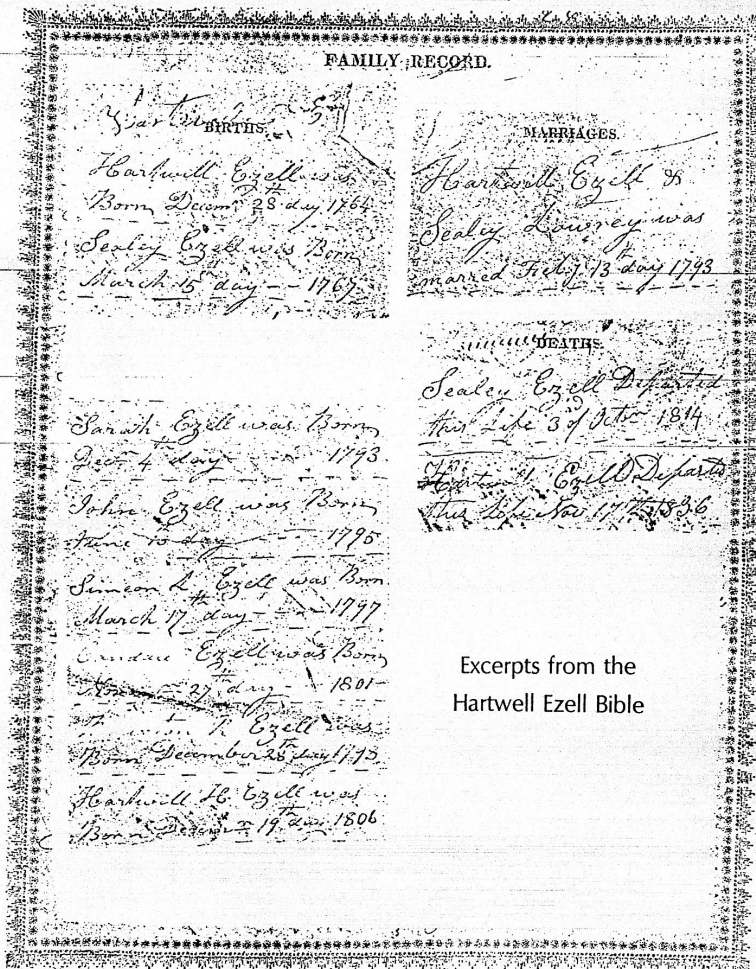 FAMILY RECORD.
BIRTHS.
Hartwill Ezell was
Born Decemr 28th day 1764
Sealey Ezell was Born
March 15th day - - 1767
Sarah Ezell was Born
Decr 4th day - - 1793
John Ezell was Born
June 10 day - - 1795
Simeon L Ezell was Born
March 17th day - - 1797
Ezell was Born
27th day - 1801
Ezell was
Born December 28th day
Hartwill H. Ezell was
Born 19th day 1806
MARRIAGES.
Hartwell Ezell &
Sealey Lowrey was
marred Feby 13th day 1793
DEATHS.
Sealey Ezell Departed
this Life 3rd of Octor 1814
Ezell Departed
this Life Nov 17th 1836
Excerpts from the
Hartwell Ezell Bible